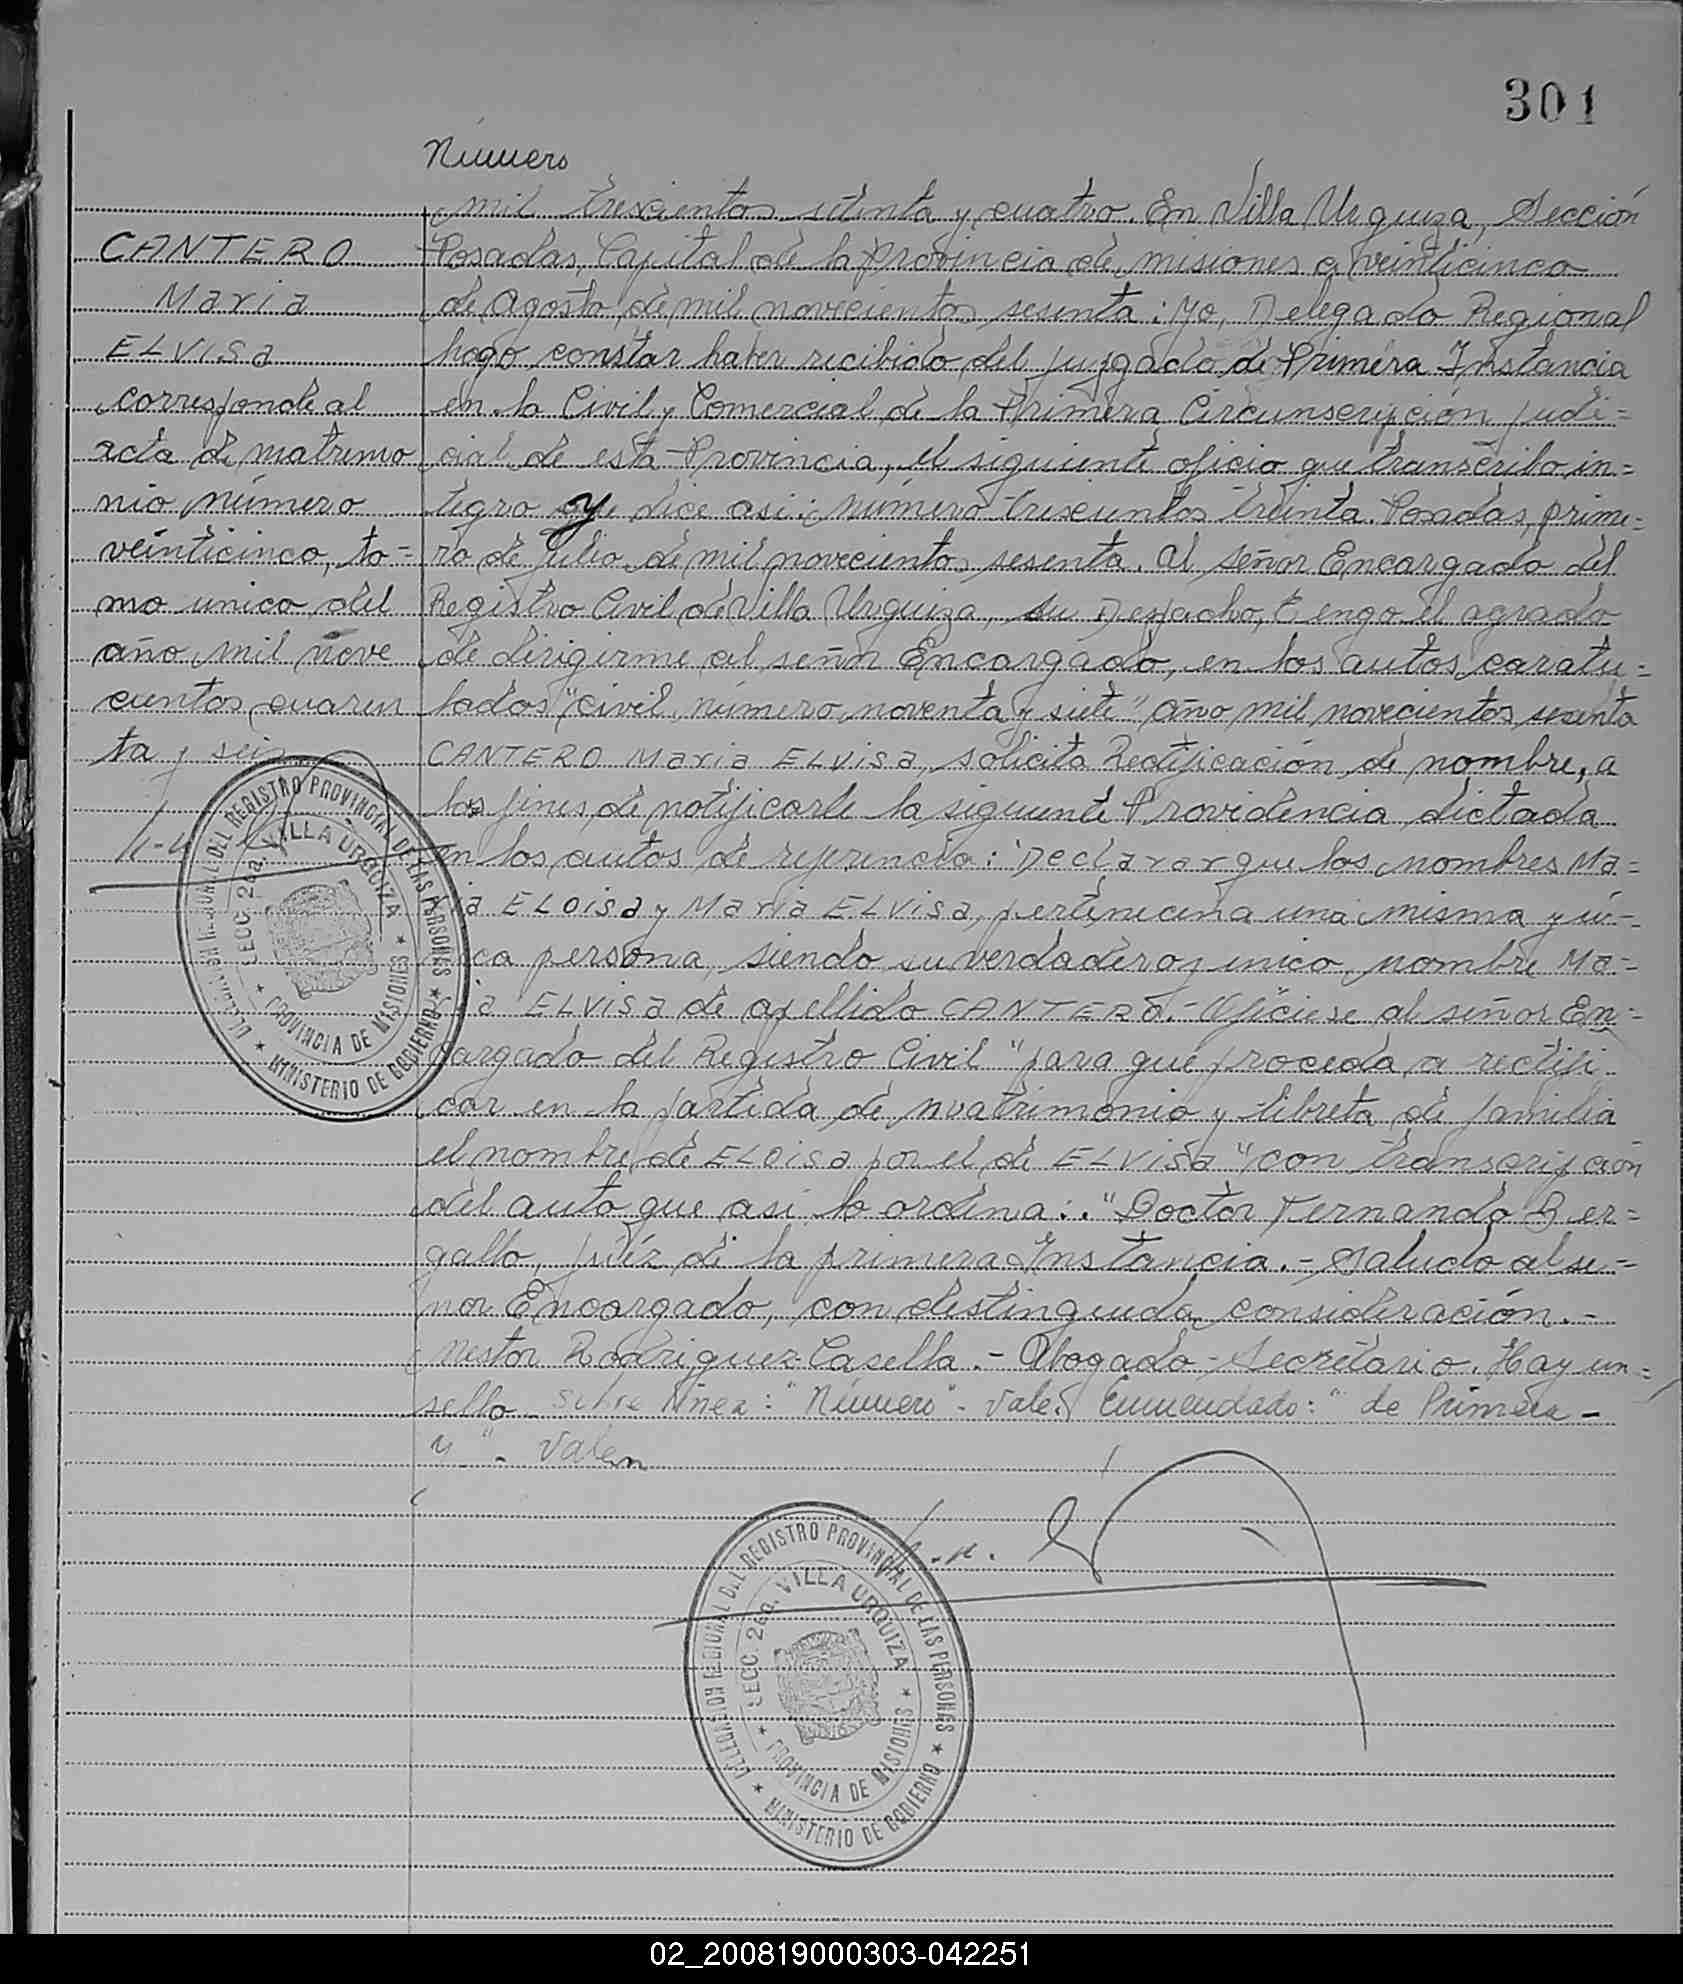 301
Número
mil trescientos setenta y cuatro. En Villa Urquiza, Sección
Posadas, Capital de la Provincia de misiones a veinticinco
de agosto de mil novecientos sesenta: Yo, Delegado Regional
hago constar haber recibido del juzgado de Primera Instancia
en lo Civil y Comercial de la Primera Circunscripción judi=
cial de esta Provincia, el siguiente oficio que transcribo in=
tegro y dice asi: número trescientos treinta. Posadas, prime=
ro de julio de mil novecientos sesenta. Al señor Encargado del
Registro Civil de Villa Urquiza, su Despacho, Tengo el agrado
de dirigirme al señor Encargado, en los autos caratu=
lados "civil número noventa y siete" año mil novecientos sesenta
CANTERO Maria ELVISA, solicita Rectificación de nombre, a
los fines de notificarle la siguiente Providencia dictada
en los autos de referencia: "Declarar que los nombres Ma=
ria ELOISA y Maria ELVISA, pertenecen a una misma y ú=
nica persona, siendo su verdadero y unico nombre Ma=
ria ELVISA de apellido CANTERO.- Ofíciese al señor En=
cargado del Registro Civil "para que proceda a rectifi
car en la partida de matrimonio y libreta de familia
el nombre de ELOISA por el de ELVISA" con transcripción
del auto que asi lo ordena:. "Doctor Fernando Ber=
gallo, juéz de la primera Instancia.- Saludo al se=
ñor Encargado, con distinguida consideración.-
Nestor Rodriguez Casella.- Abogado - Secretario. Hay un=
sello Sobre línea: "Número" - Vale. Enmendado: "de Primera -
y" - Valen
CANTERO
Maria
ELVISA
corresponde al
acta de matrimo
nio número
veinticinco, to=
mo unico del
año mil nove
cientos cuaren
ta y seis
DELEGACION REGIONAL DEL REGISTRO PROVINCIAL DE LAS PERSONAS ★ MINISTERIO DE GOBIERNO ★
SECC. 2da. VILLA URQUIZA ★ PROVINCIA DE MISIONES ★
DELEGACION REGIONAL DEL REGISTRO PROVINCIAL DE LAS PERSONAS ★ MINISTERIO DE GOBIERNO ★
SECC. 2da. VILLA URQUIZA ★ PROVINCIA DE MISIONES ★
02_200819000303-042251